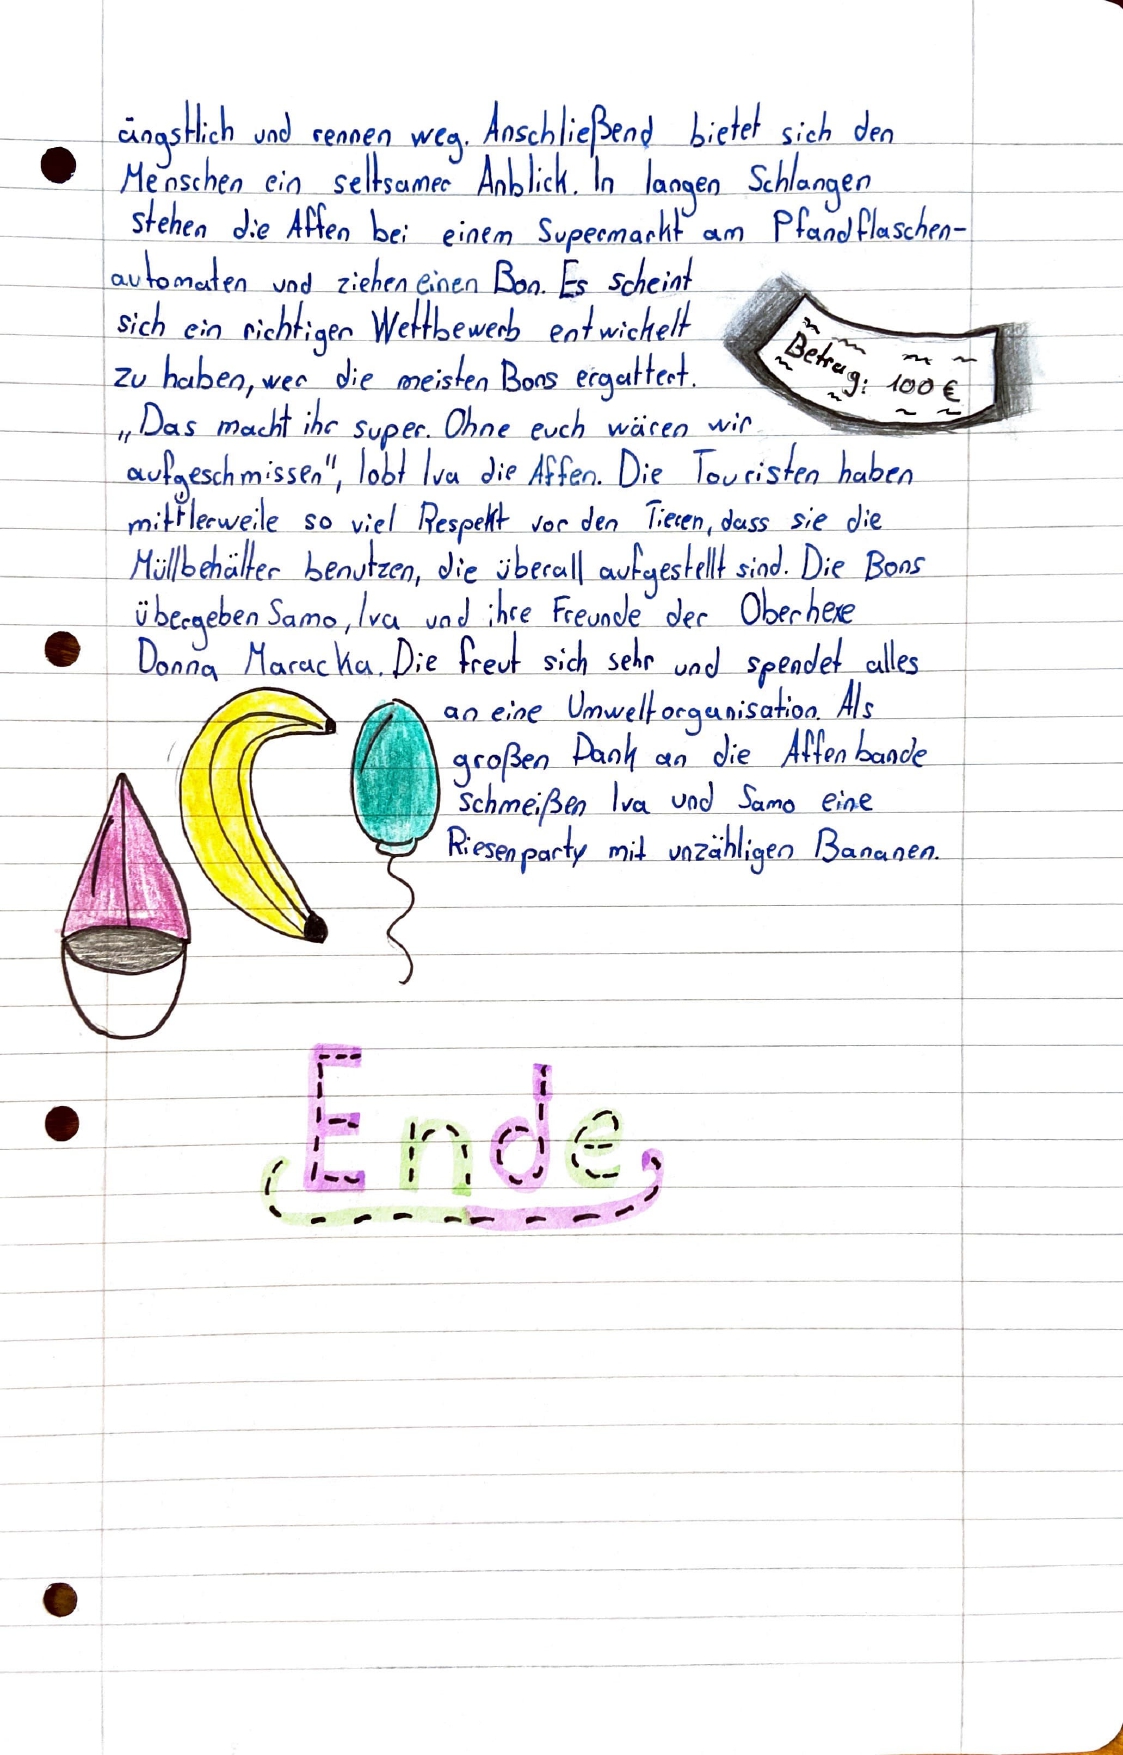 ängstlich und rennen weg. Anschließend bietet sich den
Menschen ein seltsamer Anblick. In langen Schlangen
stehen die Affen bei einem Supermarkt am Pfandflaschen-
automaten und ziehen einen Bon. Es scheint
sich ein richtiger Wettbewerb entwickelt
zu haben, wer die meisten Bons ergattert.
Betrag: 100 €
„Das macht ihr super. Ohne euch wären wir
aufgeschmissen", lobt Iva die Affen. Die Touristen haben
mittlerweile so viel Respekt vor den Tieren, dass sie die
Müllbehälter benutzen, die überall aufgestellt sind. Die Bons
übergeben Samo, Iva und ihre Freunde der Oberhexe
Donna Maracka. Die freut sich sehr und spendet alles
an eine Umweltorganisation. Als
großen Dank an die Affenbande
schmeißen Iva und Samo eine
Riesenparty mit unzähligen Bananen.
Ende